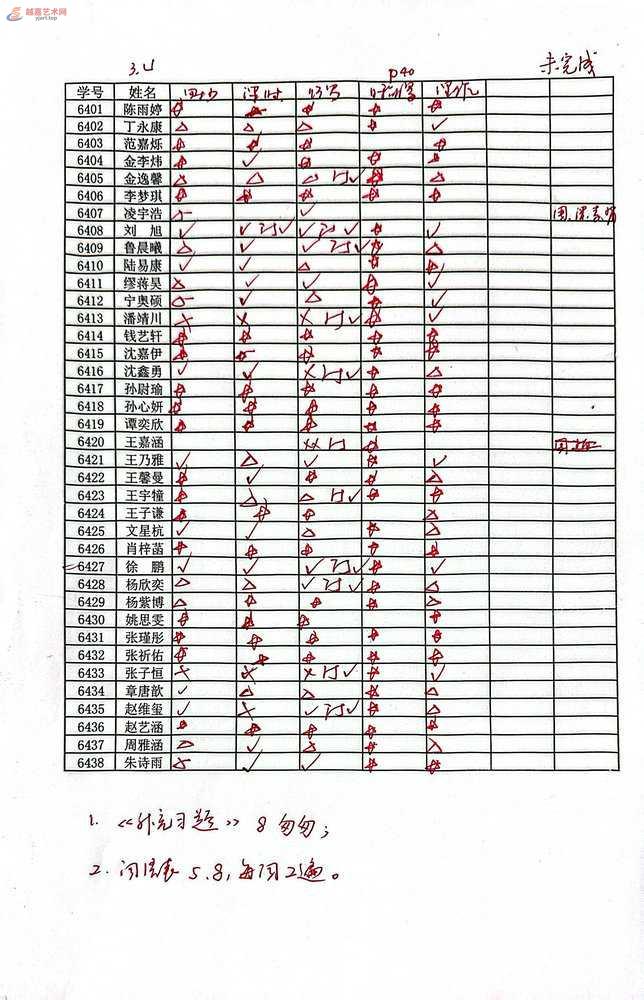 越嘉艺术网
yjart.top
3.4
P40
未完成
学号 姓名 课时
6401 陈雨婷
6402 丁永康
6403 范嘉烁
6404 金李炜
6405 金逸馨
6406 李梦琪
6407 凌宇浩
6408 刘旭
6409 鲁晨曦
6410 陆易康
6411 缪蒋昊
6412 宁奥硕
6413 潘靖川
6414 钱艺轩
6415 沈嘉伊
6416 沈鑫勇
6417 孙尉瑜
6418 孙心妍
6419 谭奕欣
6420 王嘉涵
6421 王乃雅
6422 王馨曼
6423 王宇憧
6424 王子谦
6425 文星杭
6426 肖梓菡
6427 徐鹏
6428 杨欣奕
6429 杨紫博
6430 姚思雯
6431 张瑾彤
6432 张祈佑
6433 张子恒
6434 章唐歆
6435 赵维玺
6436 赵艺涵
6437 周雅涵
6438 朱诗雨
1. 《补充习题》 8 匆匆;
2. 5.8, 每周2遍。